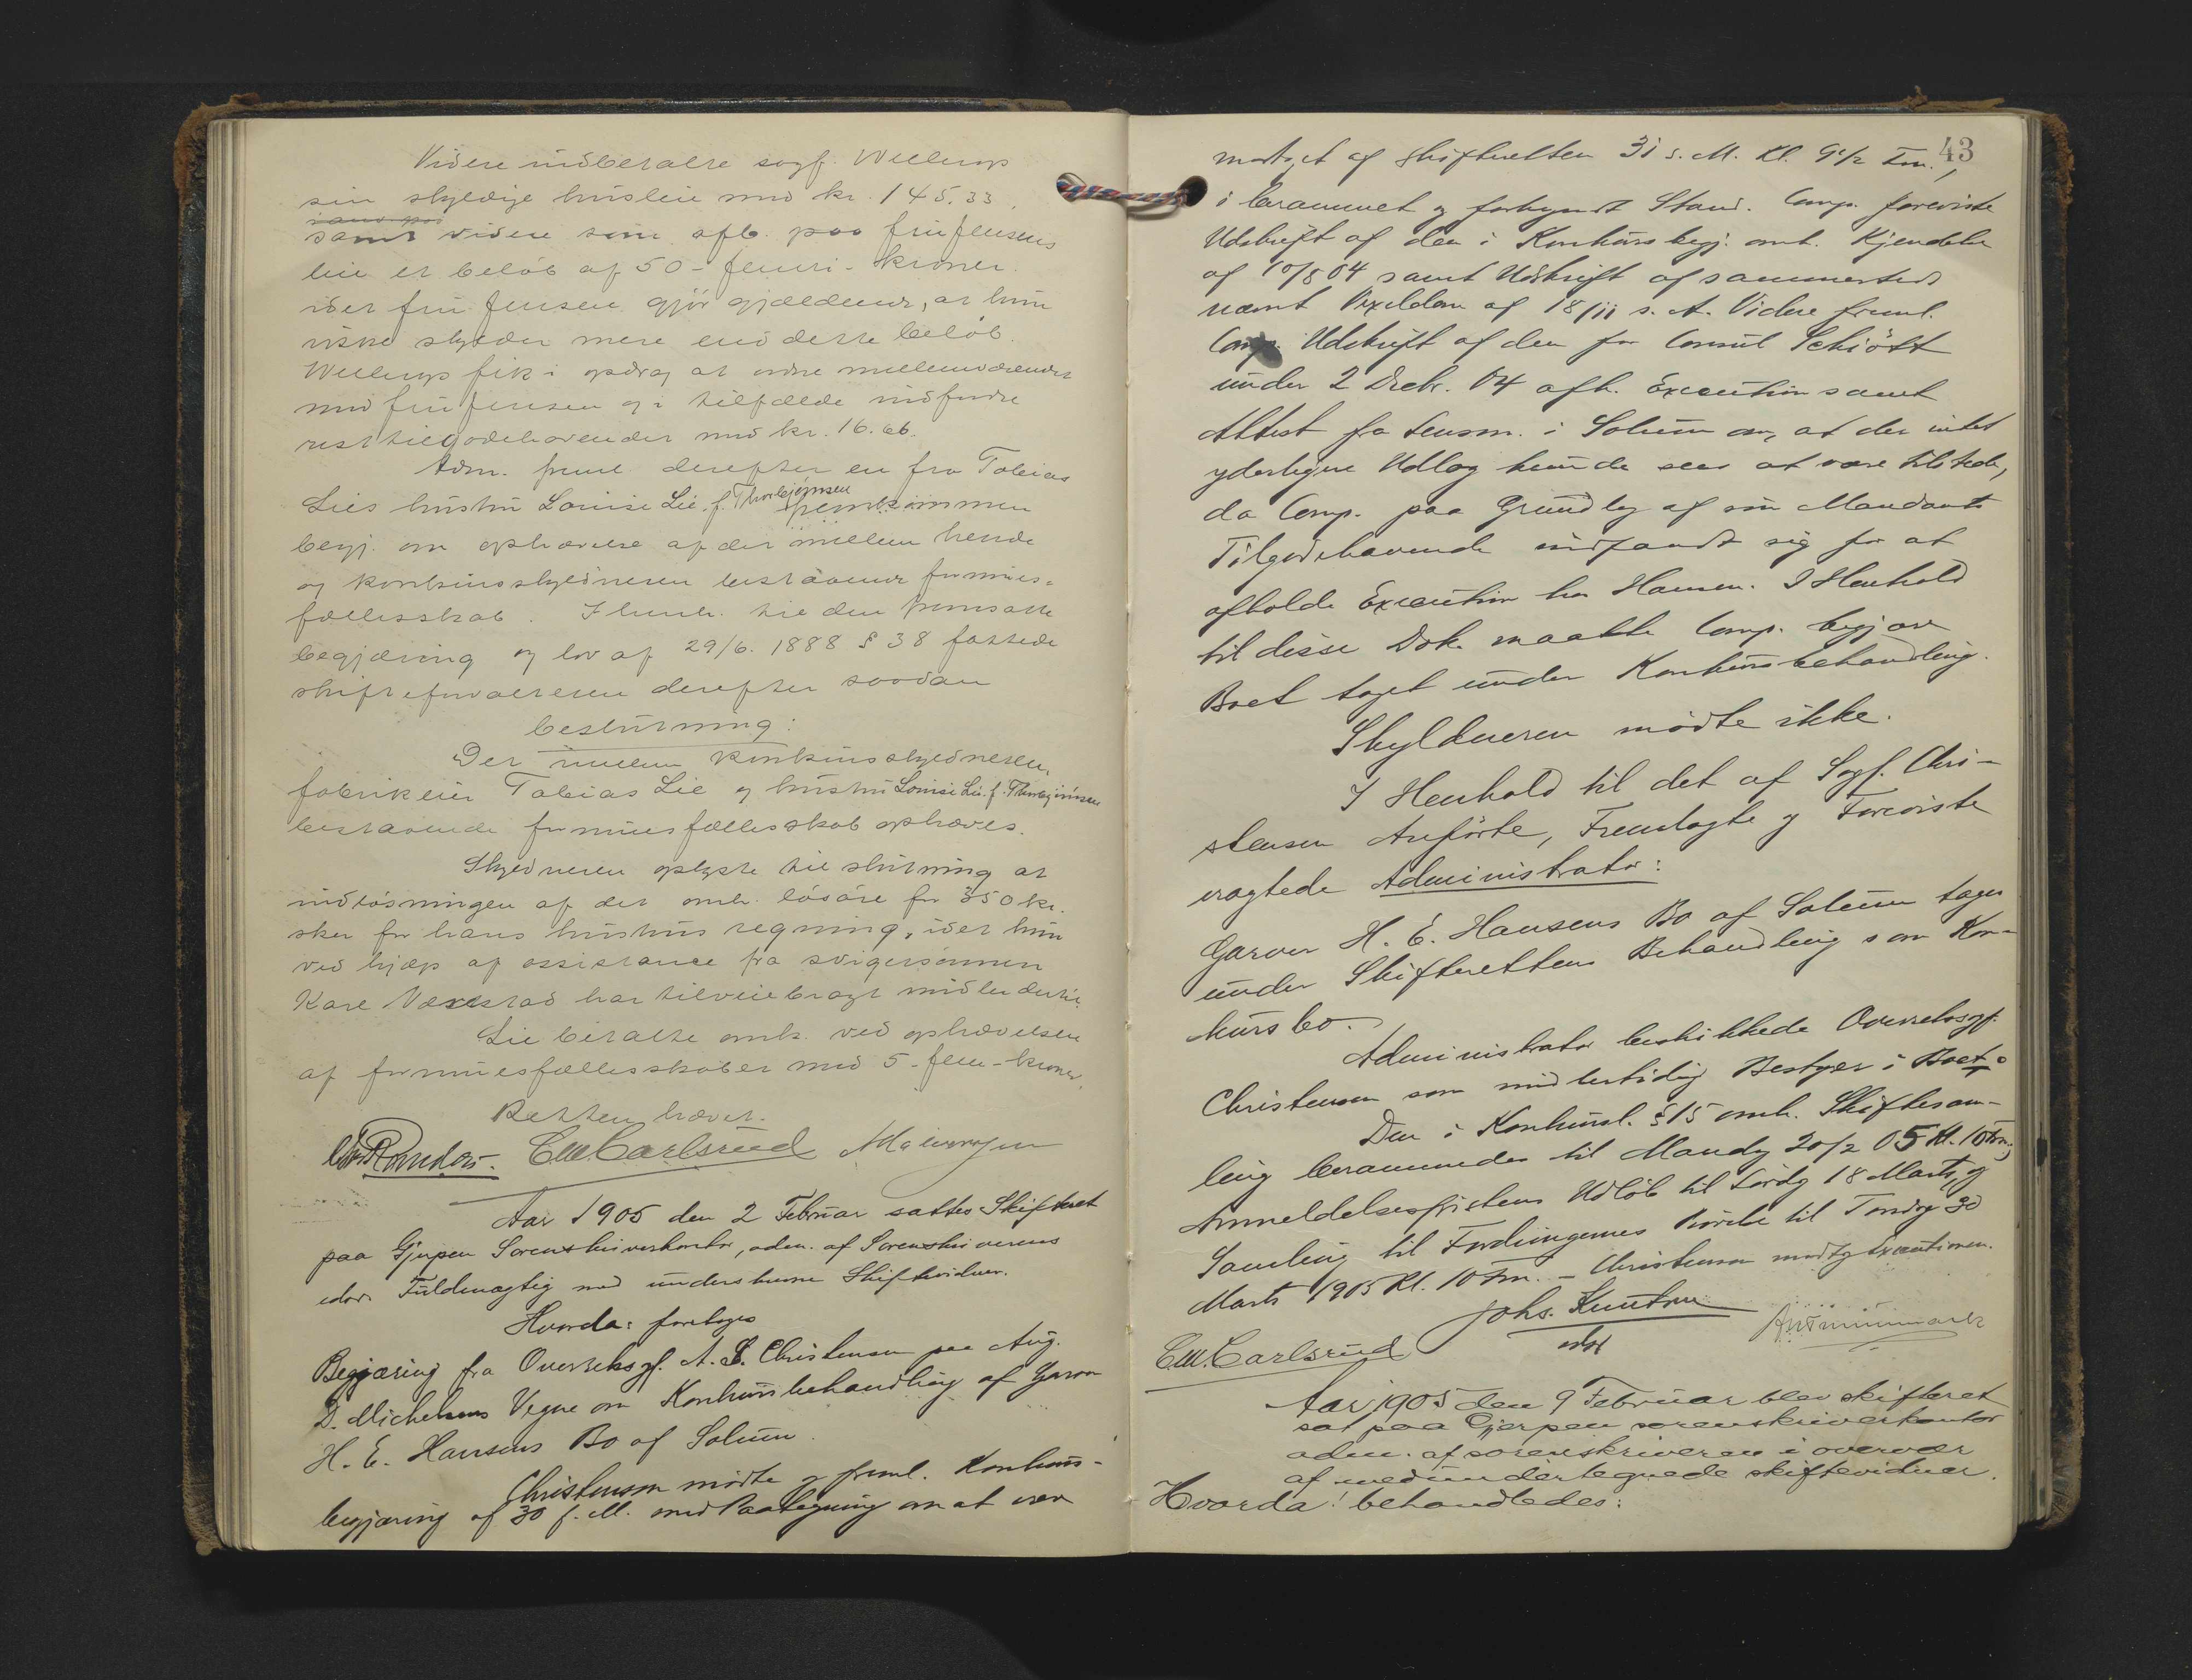 Videre indbetalte sagf. Wellerup
sin skyldige husleie med kr. 145.33.
samt videre som afb. paa fru Jensens
leie et beløb af 50 - femti - kroner
idet fru Jensen gjør gjældende, at hun
ikke skylder mere end dette beløb.
Wellerup fik i opdrag at ordne mellemværendet
med fru Jensen og i tilfælde indfordre
resttilgodehavendet med kr. 16.66.
Adm. freml. derefter en fra Tobias
Lies hustru Louise Lie, f. Thorbjørnsen fremkommen
begj. om ophævelse af det mellem hende
og konkursskyldneren bestaaende formues-
fællesskab. I henh. til den fremsatte
begjæring og lov af 29/6. 1888 § 38 fattede
skifteforvalteren derefter saadan
beslutning:
Det mellem konkursskyldneren,
fabrikeier Tobias Lie og hustru Louise Lie f. Thorbjørnsen
bestaaende formuesfællesskab ophæves.
Skyldneren oplyste til slutning at
indløsningen af det omh. løsøre for 350 kr.
sker for hans hustrus regning, idet hun
ved hjælp af assistance fra svigersønnen
Kare Vaxelstad har tilveiebragt midler dertil.
Lie betalte omk. ved ophævelsen
af formuesfællesskabet med 5 - fem - kroner.
Retten hævet.
C.M. Carlsrud
Aar 1905 den 2 Februar sattes Skifteret
paa Gjerpen Sorenskriverkontor, adm. af Sorenskriverens
edsv. Fuldmægtig med underskrevne Skiftevidner.
Hvorda: foretoges
Begjæring fra Overretssagf. A. L. Christensen paa Aug.
D. Michelsens Vegne om Konkursbehandling af Garver
H. E. Hansens Bo af Solum.
Christensen mødte og freml. Konkurs-
begjæring af 30 f. M. med Paategning om at være
43
modtaget af Skifteretten 31 s. M. Kl. 9 1/2 Fm.,
i berammet og forkyndt Stand. Comp. foreviste
Udskrift af den i Konkursbegj. omh. Kjendelse
af 10/8 04 samt Udskrift af sammesteds
nævnt Vexeldom af 18/11 s. A. Videre freml.
Comp. Udskrift af den for Consul Schiøtt
under 2 Decbr. 04 afh. Execution samt
Attest fra Lensm. i Solum om, at der intet
yderligere Udlæg kunde sees at være tilstede,
da Comp. paa Grundlag af sin Mandants
Tilgodehavende indfandt sig for at
afholde Execution hos Hansen. I Henhold
til disse Dok. maatte Comp. begjære
Boet taget under Konkursbehandling.
Skyldneren mødte ikke.
I Henhold til det af Sagf. Chri-
stensen Anførte, Fremlagte og Foreviste
eragtede Administrator:
Garver H. E. Hansens Bo af Solum tages
under Skifterettens Behandling som Kon-
kursbo.
Administrator beskikkede Overretssagf.
Christensen som midlertidig Bestyrer i Boet.
Den i Konkursl. § 15 omh. Skiftesam-
ling berammedes til Mandag 20/2 05 Kl. 10 Fm.;
Anmeldelsesfristens Udløb til Lørdag 18 Marts, og
Samling til Fordringernes Prøvelse til Torsdag 30
Marts 1905 Kl. 10 Fm. - Christensen modtog Executionen.
Johs. Knutsen
edsv
C.M. Carlsrud
Aar 1905 den 9 Februar blev skifteret
sat paa Gjerpen sorenskriverkontor
adm. af sorenskriveren i overvær
af medundertegnede skiftevidner.
Hvorda! behandledes: